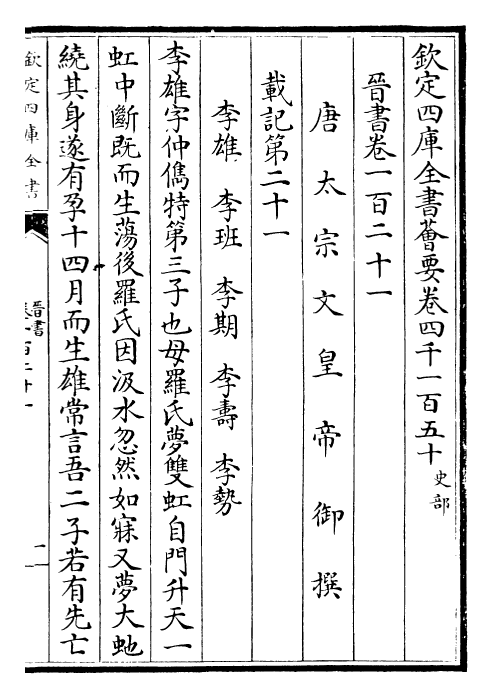 欽定四庫全書薈要卷四千一百五十 史部
晉書卷一百二十一
唐太宗文皇帝御撰
載記第二十一
李雄 李班 李期 李壽 李勢
李雄字仲儁特第三子也母羅氏夢雙虹自門升天一
虹中斷既而生蕩後羅氏因汲水忽然如寐又夢大虵
繞其身遂有孕十四月而生雄常言吾二子若有先亡
欽定四庫全書
晉書